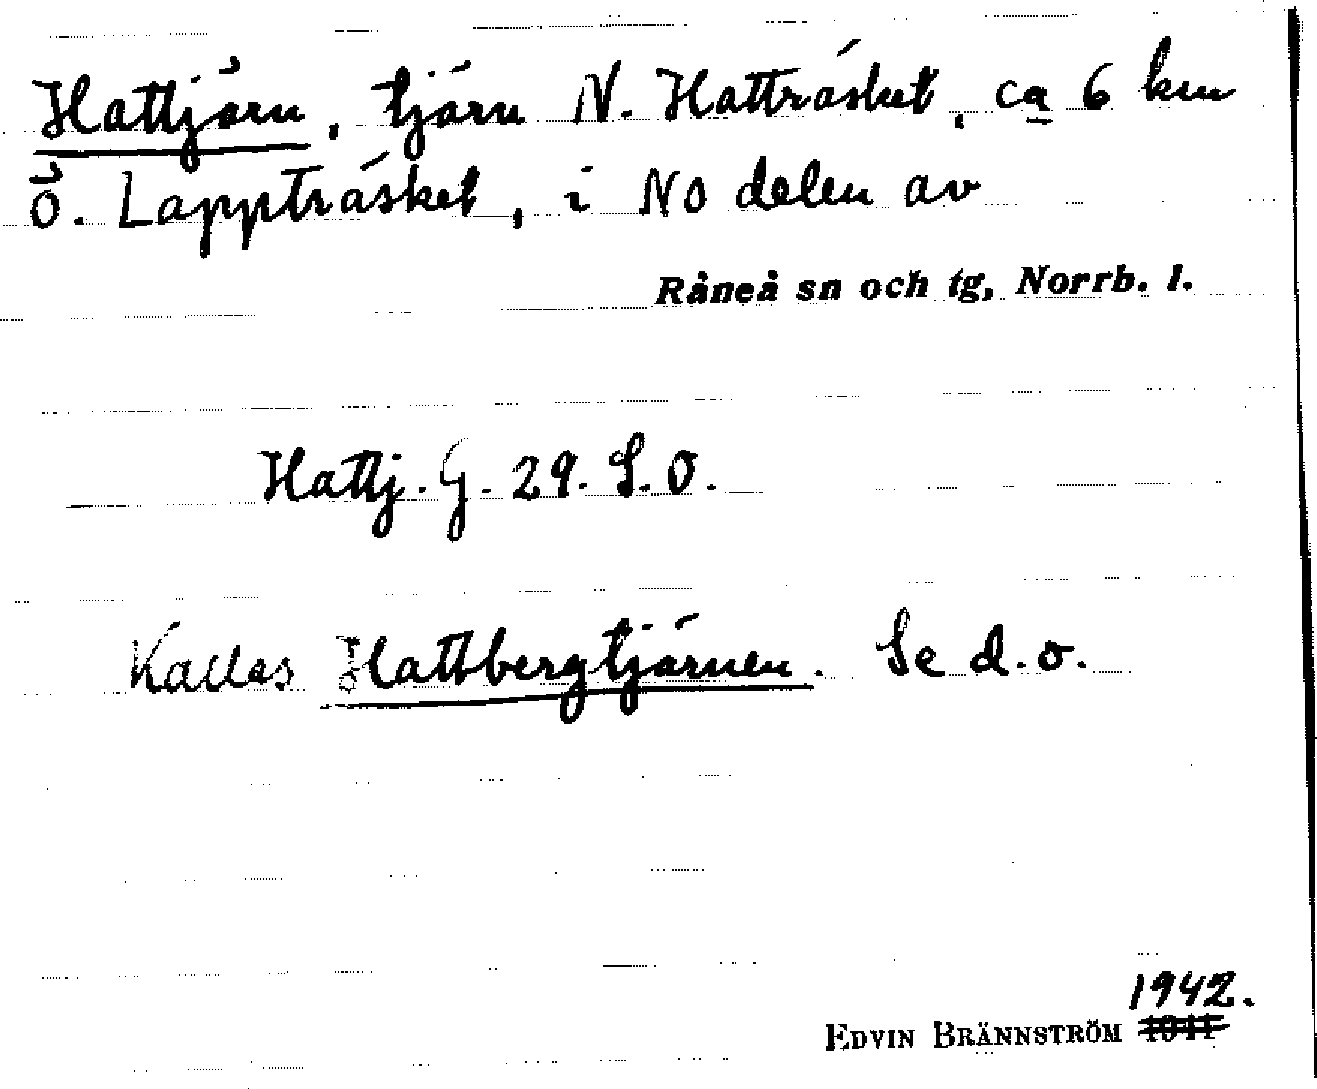 Hattjärn, tjärn N. Hatträsket, ca 6 km
ö. Lappträsket, i NO delen av
Råneå sn och tg, Norrb. l.
Hattj. G. 29. S.O.
Kallas Hattbergtjärnen. Se d.o.
1942.
EDVIN BRÄNNSTRÖM 1941